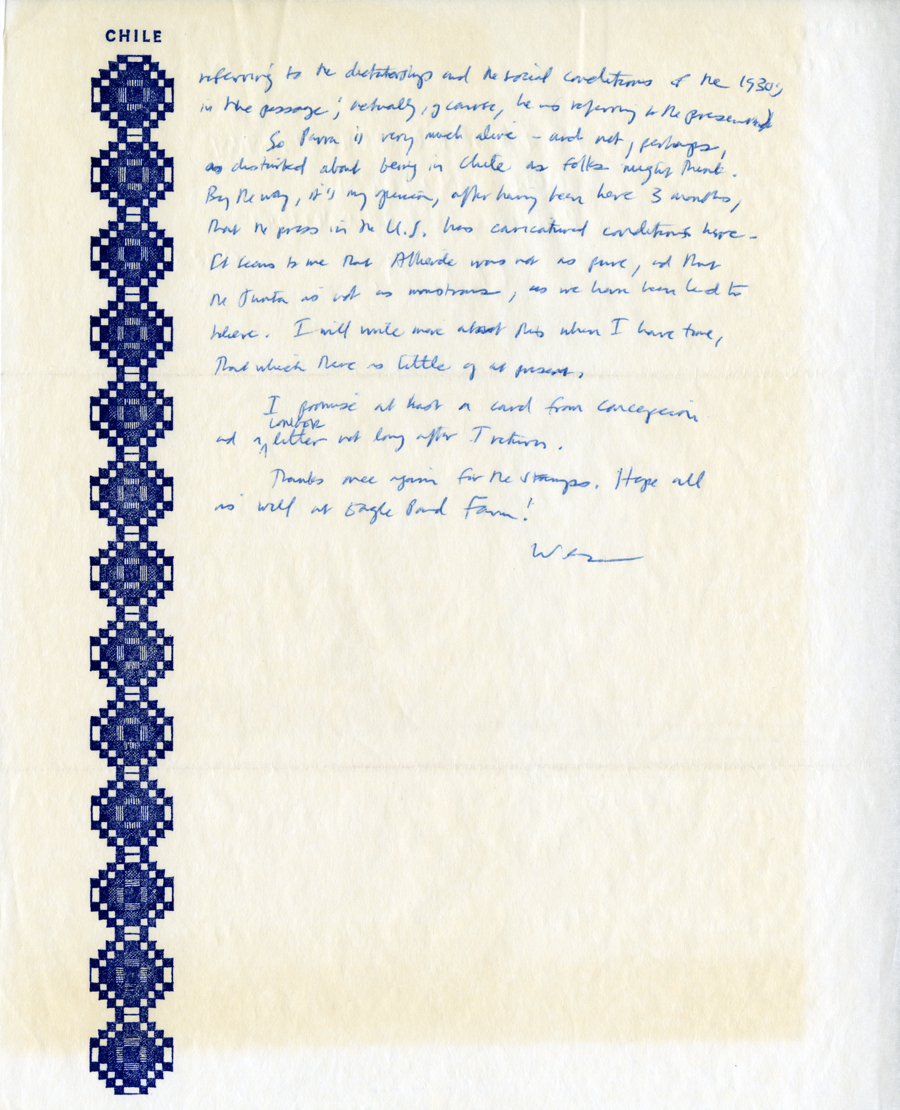 CHILE
referring to the dictatorships and the social conditions of the 1930s,
in the passage; actually, of course, he was referring to the present.
So Parra is very much alive – and not, perhaps,
as disturbed about being in Chile as folks might think.
By the way, it's my opinion, after having been here 3 months,
that the press in the U.S. has caricatured conditions here –
It seems to me that Allende was not as pure, and that
the Junta is not as monstrous, as we have been led to
believe. I will write more about this when I have time,
that which there is little of at present.
I promise at least a card from Concepcion
and a longer letter not long after I return.
Thanks once again for the stamps. Hope all
is well at Eagle Pond Farm!
Wes